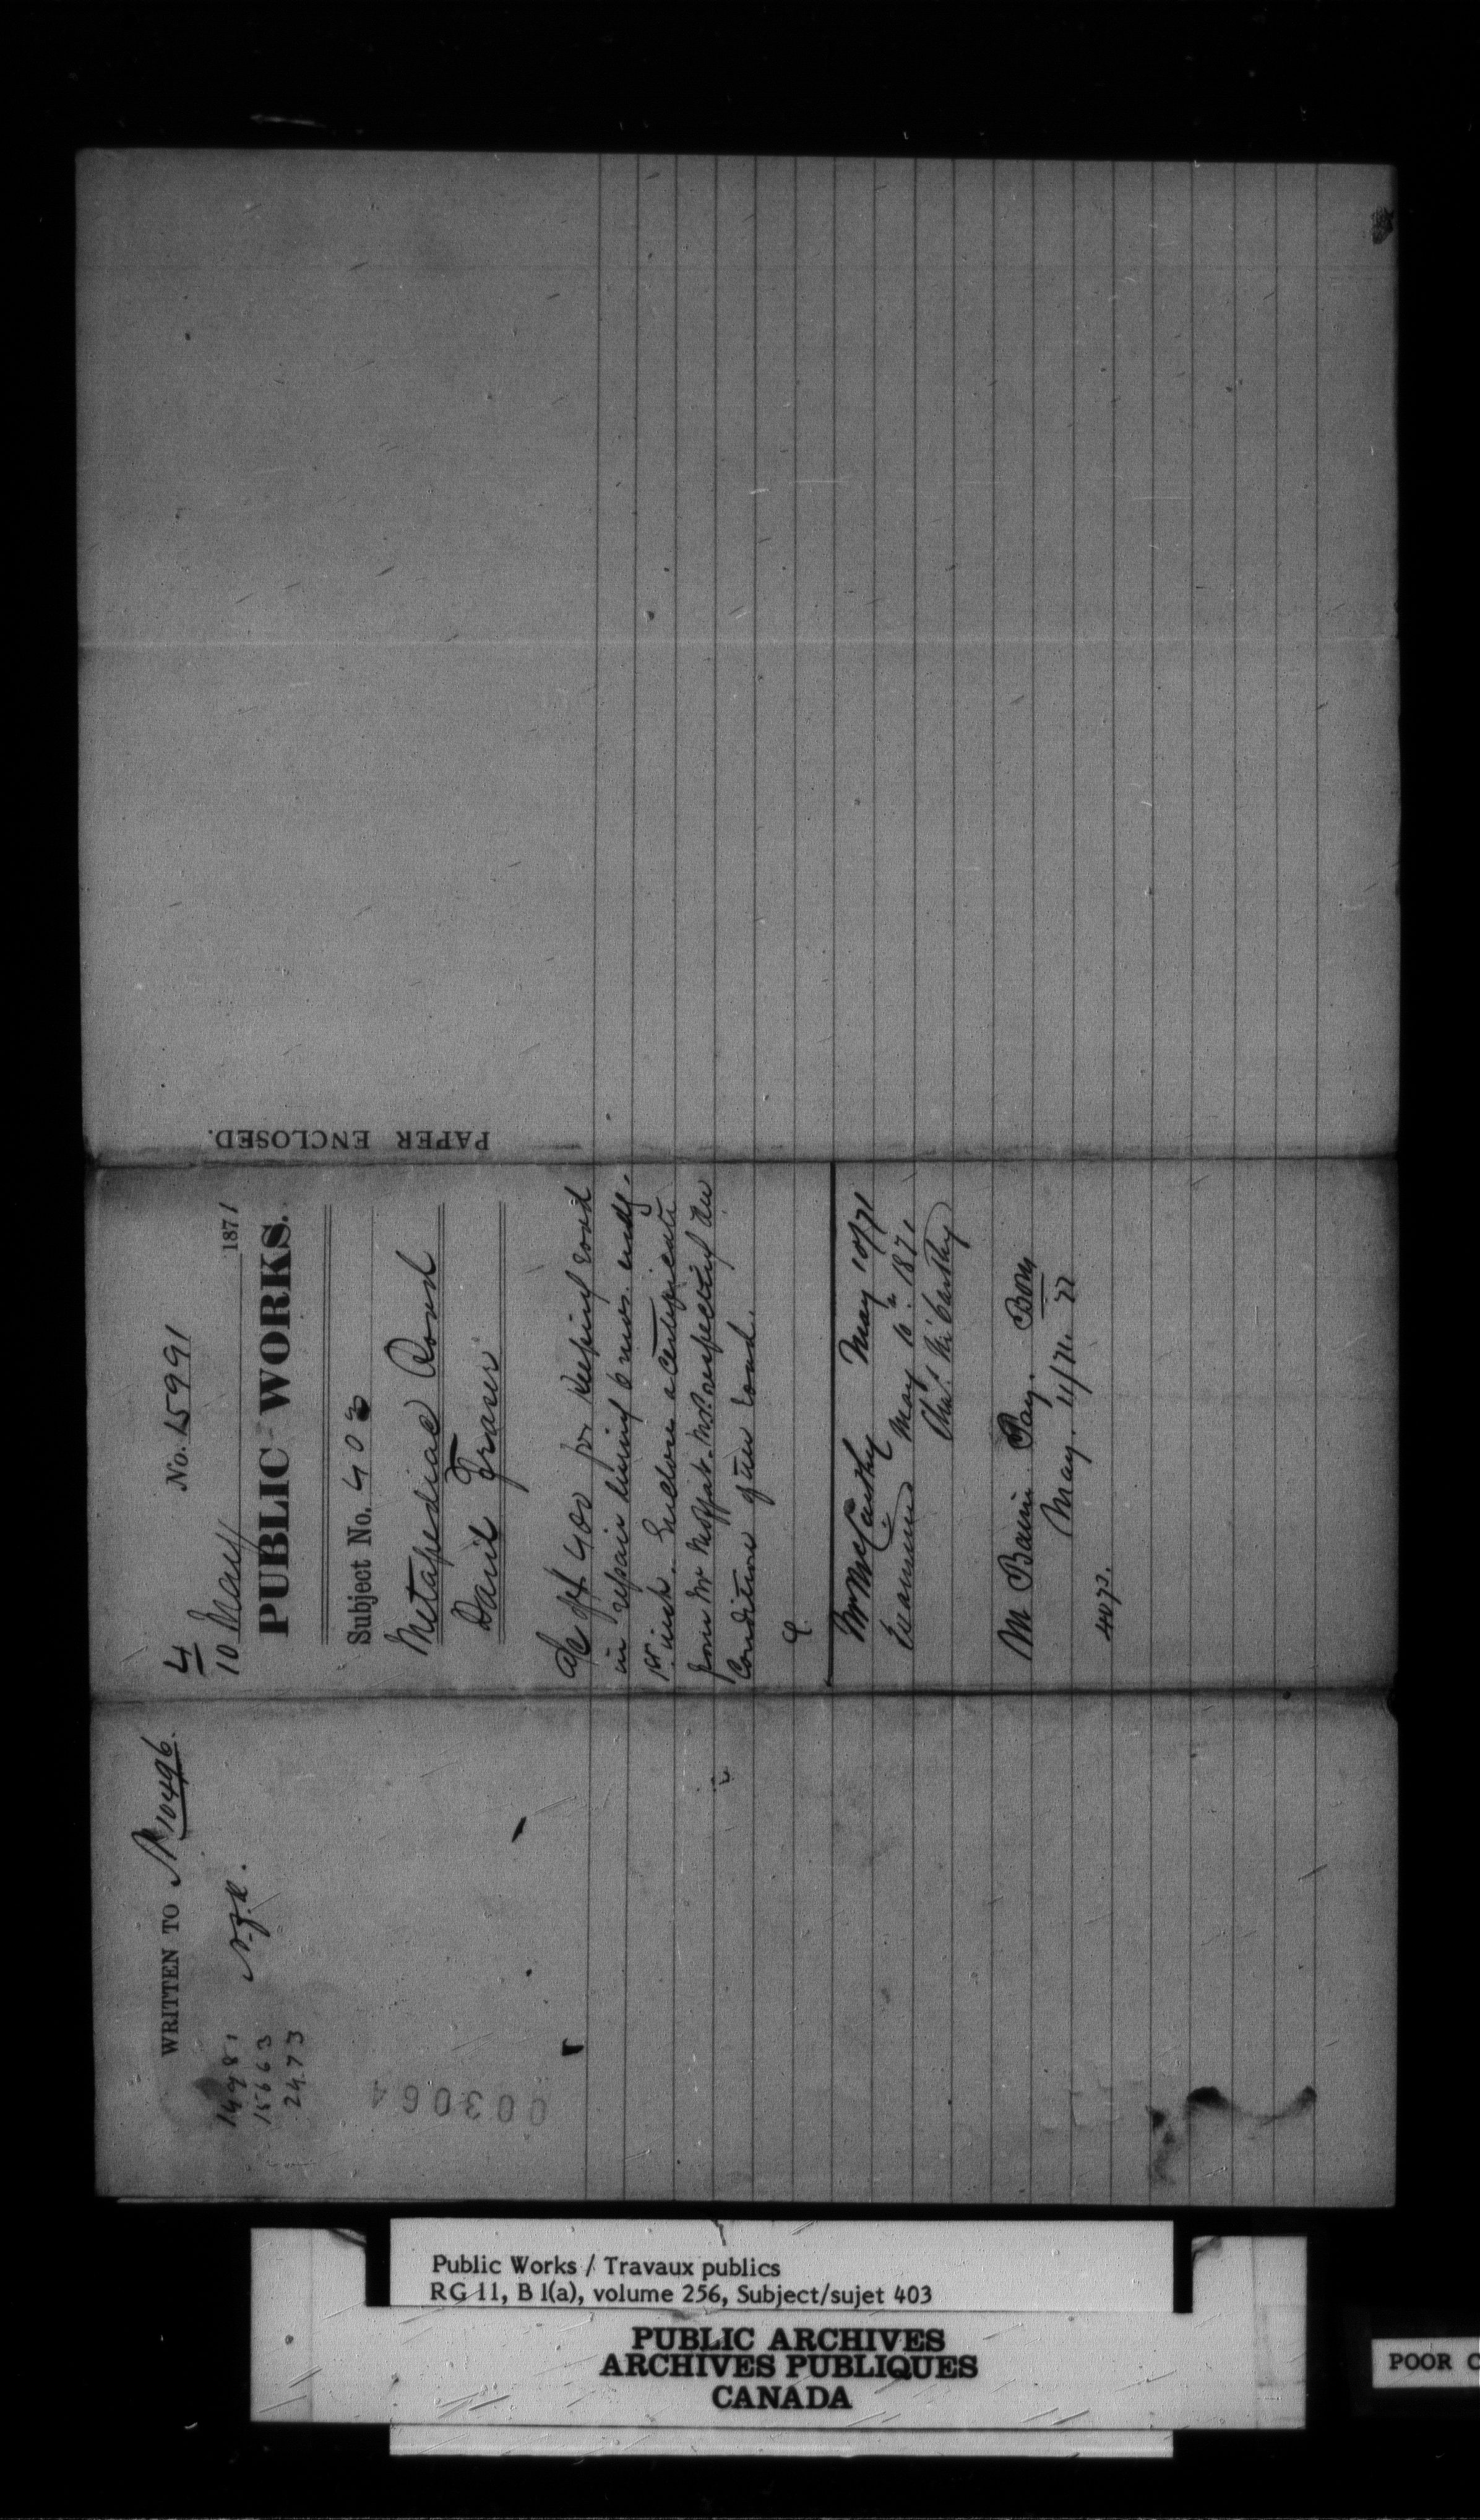 WRITTEN TO No 10496.
14981
15663
2473
003064
4
No. 15991
10 May 1871
PUBLIC WORKS.
Subject No. 403
Metapediac Road
Danl Fraser
a/c of $400 for keeping road
in repair during 6 mos. endg.
1st inst. Encloses a certificate
from Mr Moffat. M.P. respecting the
condition of the road.
Mr McCarthy May 10/71
Examined May 10th 1871
Chas. McCarthy
Mr Baine Pay.
May. 11/71.
4073.
PAPER ENCLOSED.
Public Works / Travaux publics
RG 11, B 1(a), volume 256, Subject/sujet 403
PUBLIC ARCHIVES
ARCHIVES PUBLIQUES
CANADA
POOR C